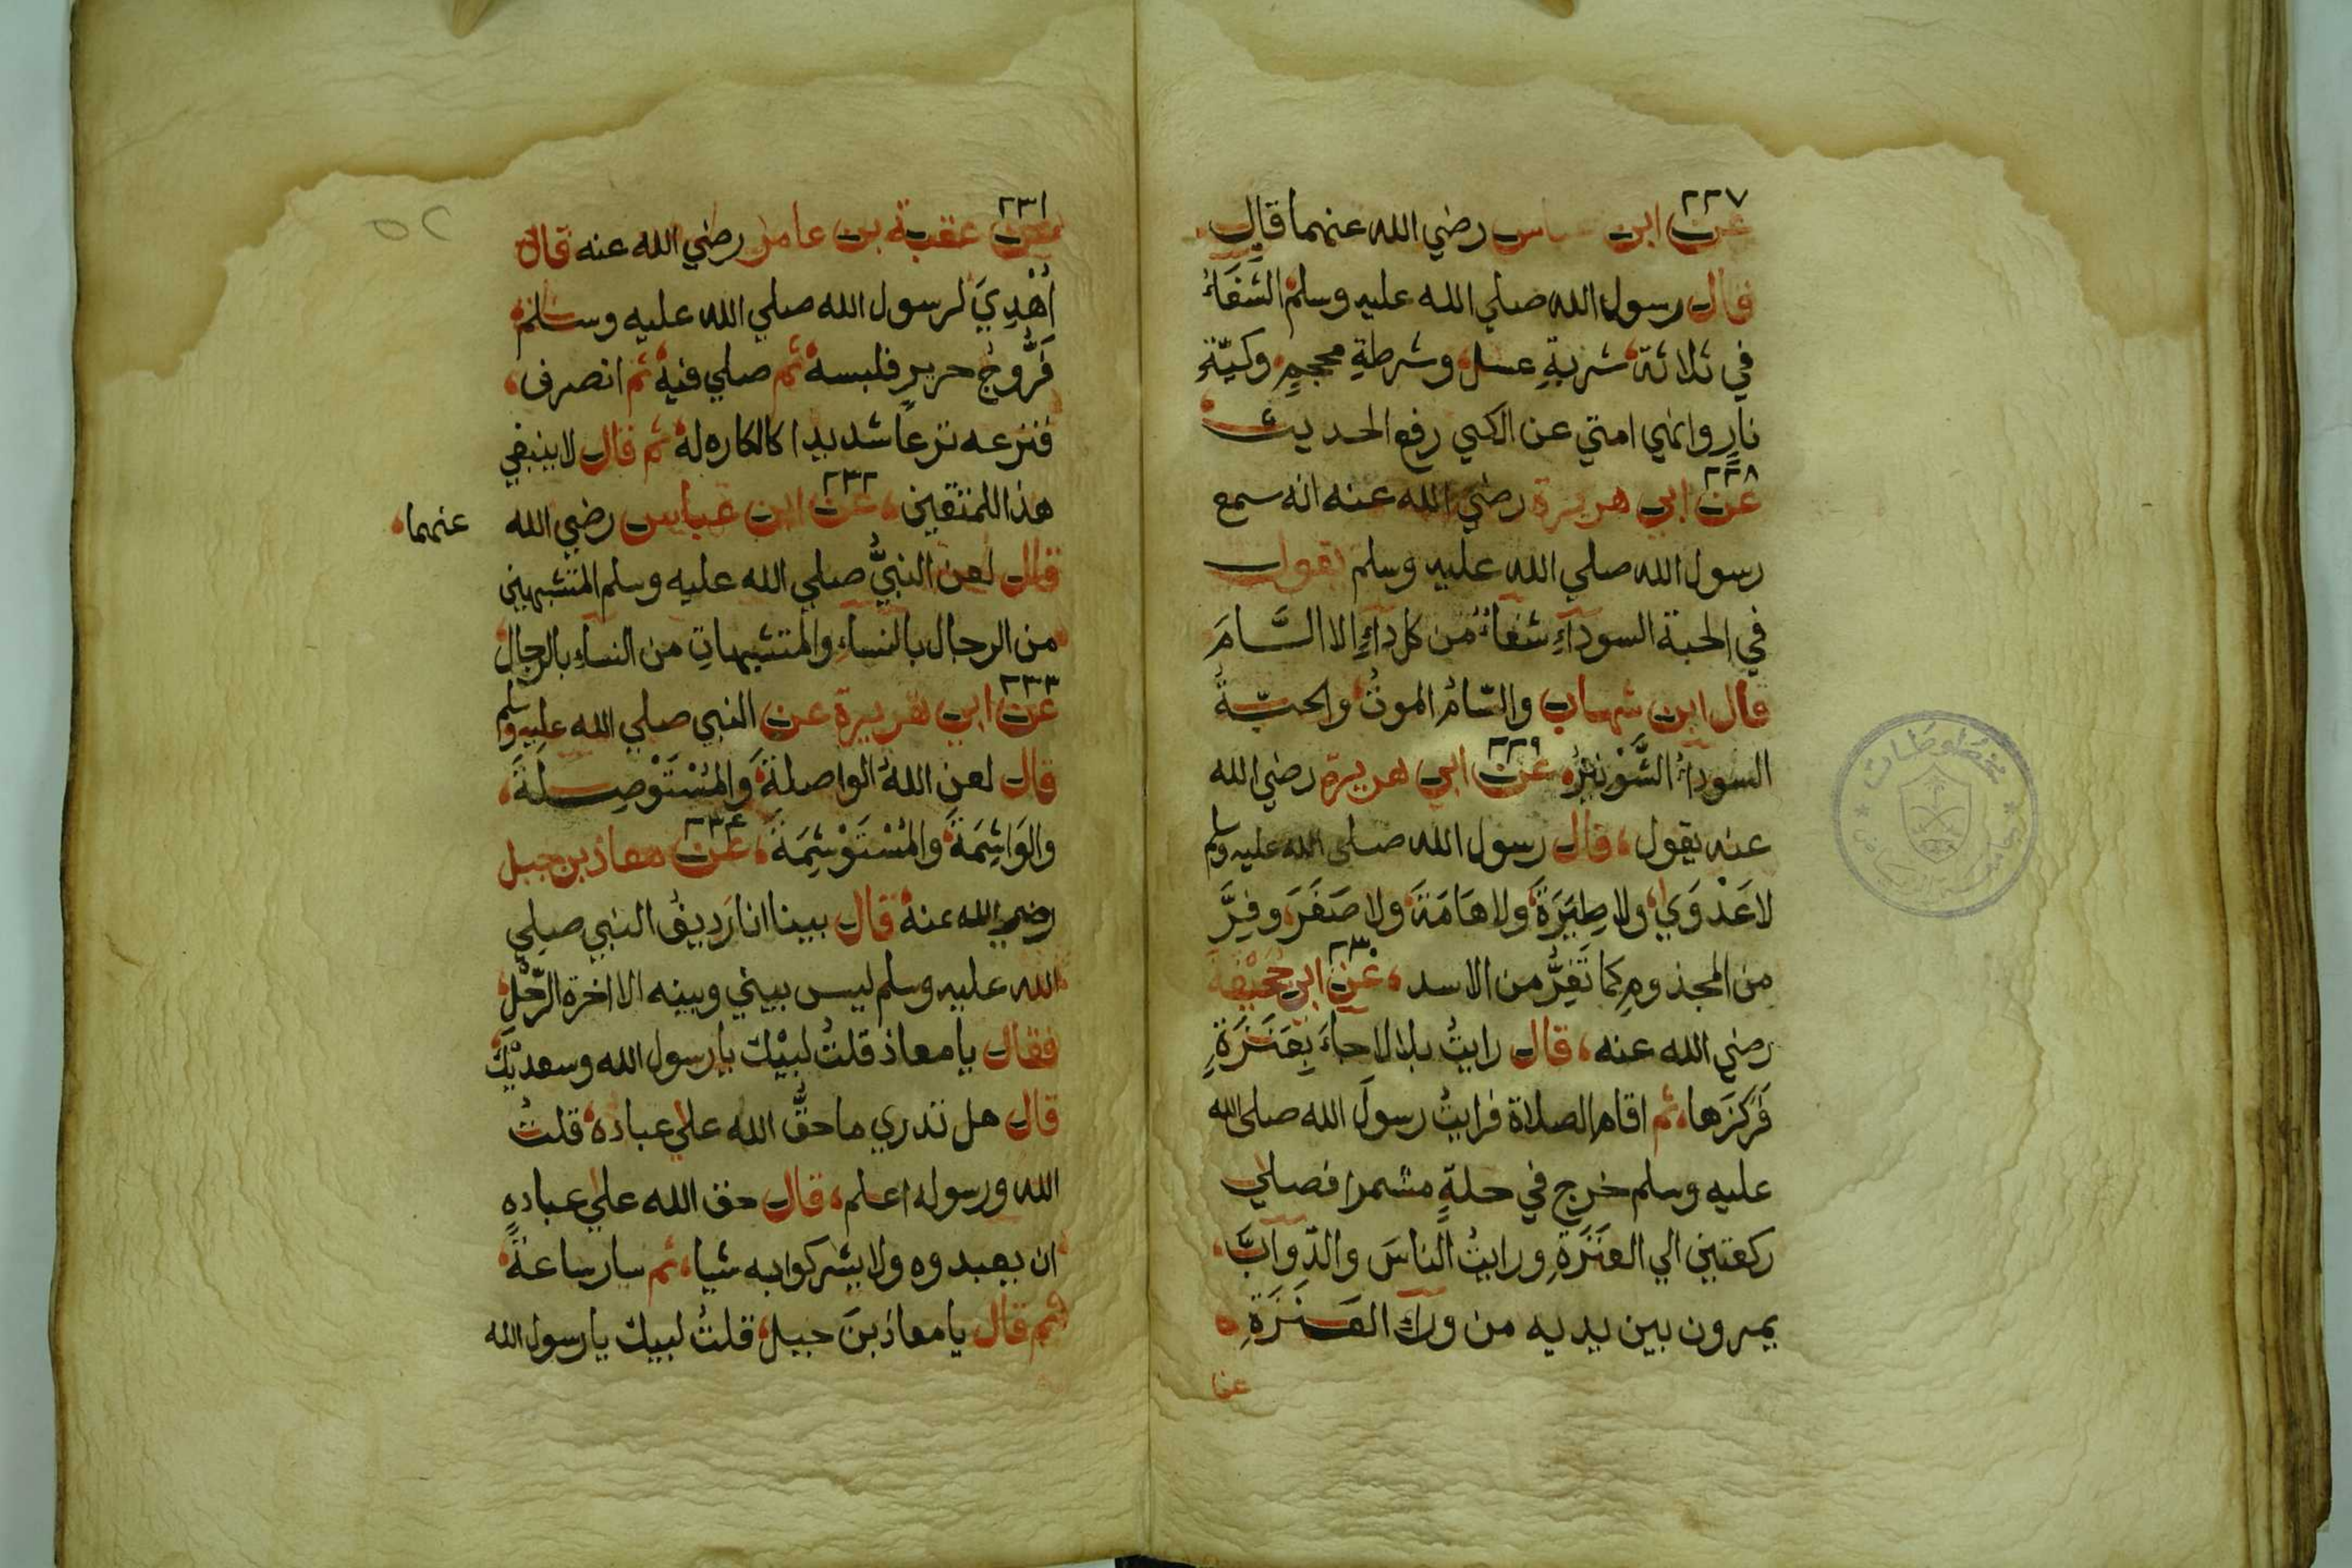 ٢٢٧
عن ابن عباس رضي الله عنهما قال
قال رسول الله صلي الله عليه وسلم الشفَاءُ
في ثلاثة شربةِ عسل وشرطةِ محجمٍ وكيّةِ
نارٍ وانهي امتي عن الكي رفع الحديث
٢٢٨
عن ابي هريرة رضي الله عنه انه سمع
رسول الله صلي الله عليه وسلم يقول
في الحبة السوداۤءِ شفاۤءٌ من كل داۤءٍ الا السَّامَ
قال ابن شهاب والسّامُ الموتُ والحبّةُ
السوداۤءُ الشَّوْنيزُ ٢٢٩ عن ابي هريرة رضي الله
عنه يقول قال رسول الله صلي الله عليه وسلم
لا عَدْوَي ولا طِيَرَةَ ولا هَامَةَ ولا صَفَرَ وفِرَّ
من المجذومِ كما تَفِرُّ من الاسد ٢٣٠ عن ابي جُحَيْفَةَ
رضي الله عنه قال رايتُ بلالا جاۤءَ بِعَنَزَةٍ
فَرَكَزَها ثم اقام الصلاة فرايتُ رسولَ الله صلي الله
عليه وسلم خرج في حلةٍ مشمرا فصلي
ركعتين الي العَنَزَةِ ورايتُ الناسَ والدّواۤبَّ
يمرون بين يديه من وراۤءِ العَنَزَةِ
عن
٢٣١
عن عقبة بن عامر رضي الله عنه قال
اُهْدِيَ لرسول الله صلي الله عليه وسلم
فَرُّوجُ حريرٍ فلبسه ثم صلي فيه ثم انصرف
فنزعه نزعاً شديدا كالكاره له ثم قال لا ينبغي
هذا للمتقين ٢٣٢ عن ابن عباس رضي الله عنهما
قال لعن النبيُّ صلي الله عليه وسلم المتشبهين
من الرجال بالنساۤءِ والمتشبهاتِ من النساۤءِ بالرجال
٢٣٣
عن ابي هريرة عن النبي صلي الله عليه وسلم
قال لعن اللهُ الواصلةَ وَالمُسْتَوْصِلَةَ
والوَاشِمَةَ والمُسْتَوْشِمَةَ ٢٣٤ عن معاذ بن جبل
رضي الله عنه قال بينا انا رَدِيفُ النبي صلي
الله عليه وسلم ليس بيني وبينه الا اخرة الرَّحْلِ
فقال يا معاذ قلتُ لبيْك يا رسول الله وسعدَيْكَ
قال هل تدري ما حقُّ الله علي عباده قلتُ
الله ورسوله اعلم قال حق الله علي عباده
ان يعبدوه ولا يشركوا به شيا ثم سار ساعةً
ثم قال يا معاذ بنَ جبل قلتُ لبيك يا رسول الله
مخطوطات